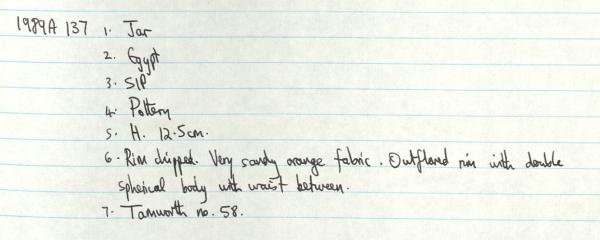 1989A 137 1. Jar
2. Egypt
3. SIP
4. Pottery
5. H. 12.5cm.
6. Rim chipped. Very sandy orange fabric. Outflared rim with double
spherical body with waist between.
7. Tamworth no. 58.